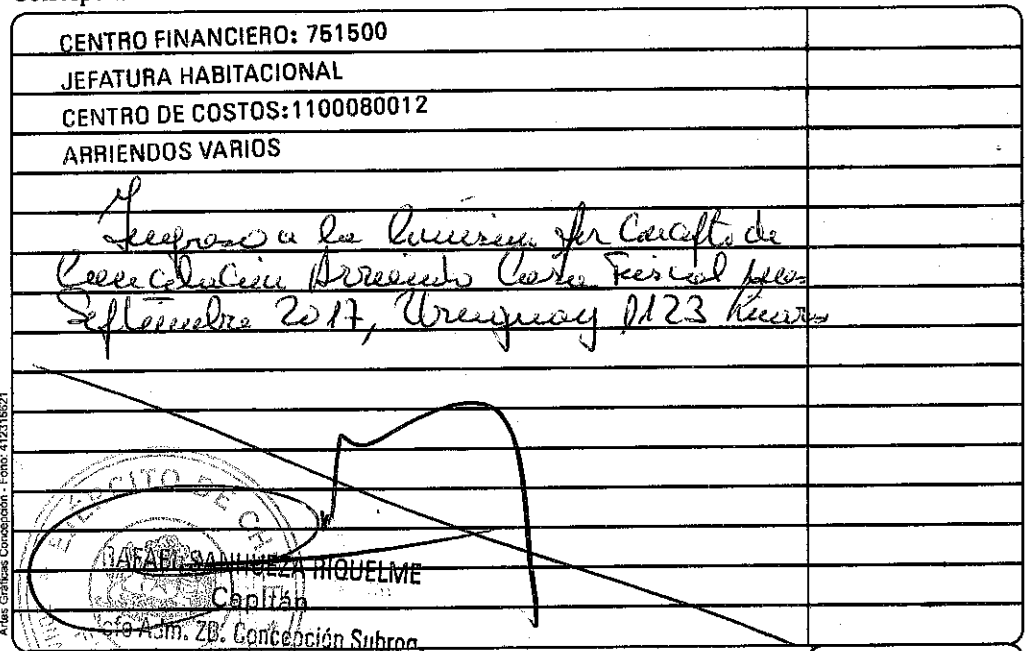 CENTRO FINANCIERO: 751500
JEFATURA HABITACIONAL
CENTRO DE COSTOS:1100080012
ARRIENDOS VARIOS
Ingreso a la Comision por Concepto de
Cancelacion Arriendo Casa Fiscal
Septiembre 2017, Uruguay 1123
EJERCITO DE CH
RAFAEL SANHUEZA RIQUELME
Capitán
Adm. ZB. Concepción Subrog.
Artes Gráficas Concepción - Fono: 412316621